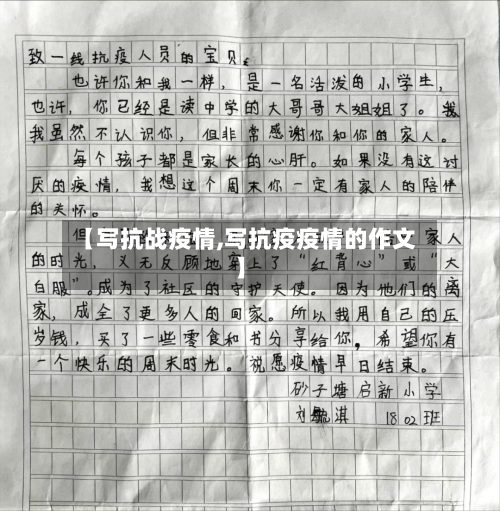 致一线抗疫人员的宝贝:
也许你和我一样,是一名活泼的小学生,
也许,你已经是读中学的大哥哥大姐姐了。我
我虽然不认识你,但非常感谢你和你的家人。
每个孩子都是家长的心肝。如果没有这讨
厌的疫情,我想这个周末你一定有家人的陪伴
的关怀。
但
家人
【写抗战疫情,写抗疫疫情的作文
】
的时光,义无反顾地穿上了“红背心”或“大
白服”。成为了社区的守护天使。因为他们的离
家,成全了更多人的回家。所以我用自己的压
岁钱,买了一些零食和书分享给你,希望你有
一个快乐的周末时光。祝愿疫情早日结束。
砂子塘启新小学
刘毓淇 1802班